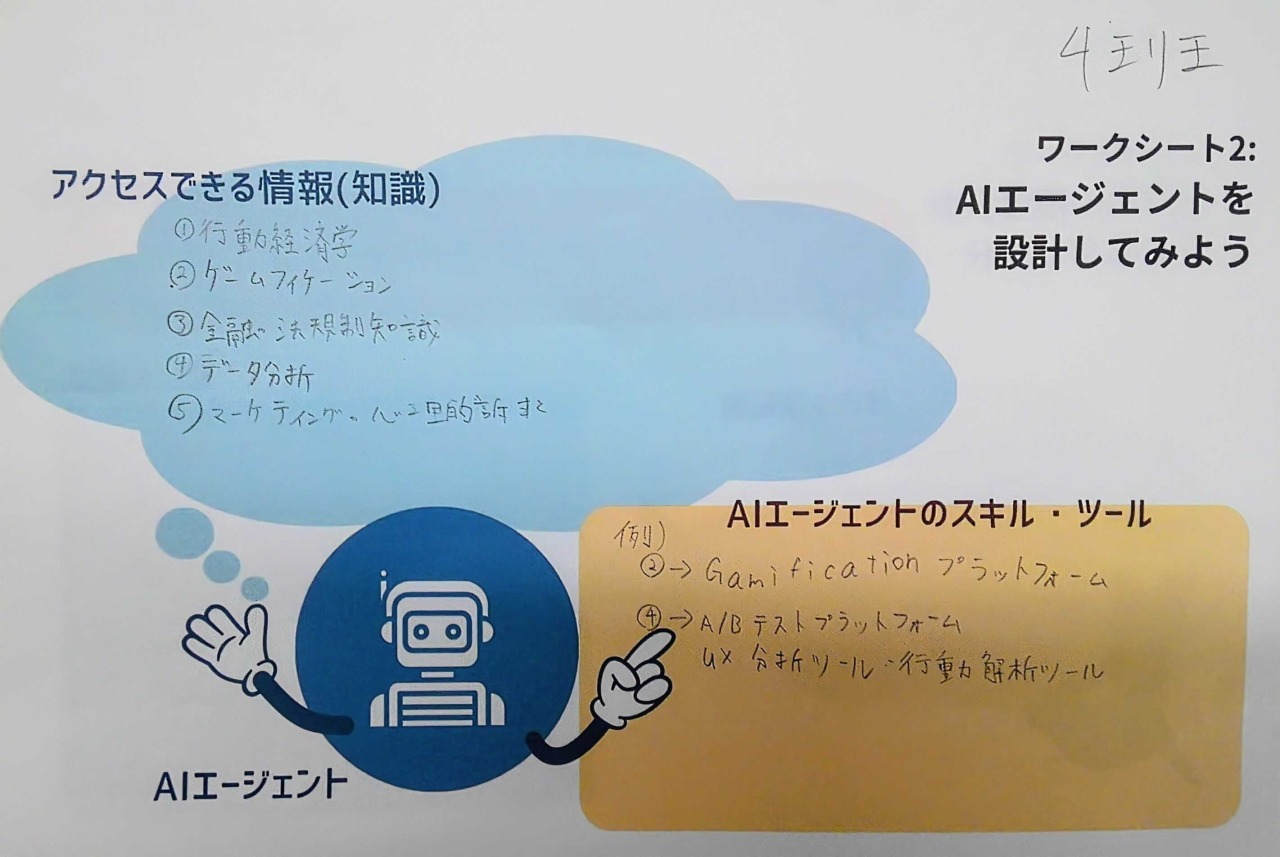 4班
ワークシート2:
AIエージェントを
設計してみよう
アクセスできる情報(知識)
①行動経済学
②ゲームフィケーション
③金融・法規制知識
④データ分析
⑤マーケティング・心理的
AIエージェントのスキル・ツール
例)
②→Gamificationプラットフォーム
④→A/Bテストプラットフォーム
UX分析ツール・行動解析ツール
AIエージェント